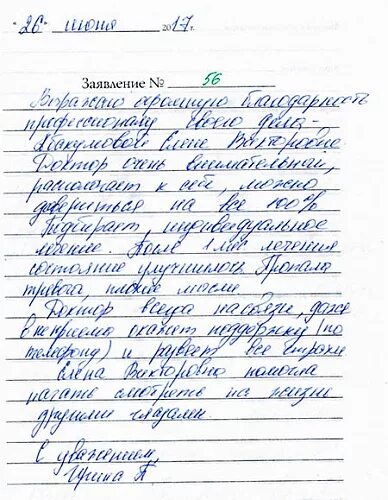 "26" июня 2017г.
Заявление № 56
Выражаю огромную благодарность
профессионалу своего дела -
Елене Викторовне.
Доктор очень внимательный,
располагает к себе, можно
довериться на все 100%
Подбирает индивидуальное
лечение. После 1 мес лечения
состояние улучшилось. Пропала
тревога, плохие мысли.
Доктор всегда на связи, даже
вне приема окажет поддержку (по
телефону) и развеет все страхи
Елена Викторовна помогла
начать смотреть на жизнь
другими глазами.
С уважением,
Ирина П.